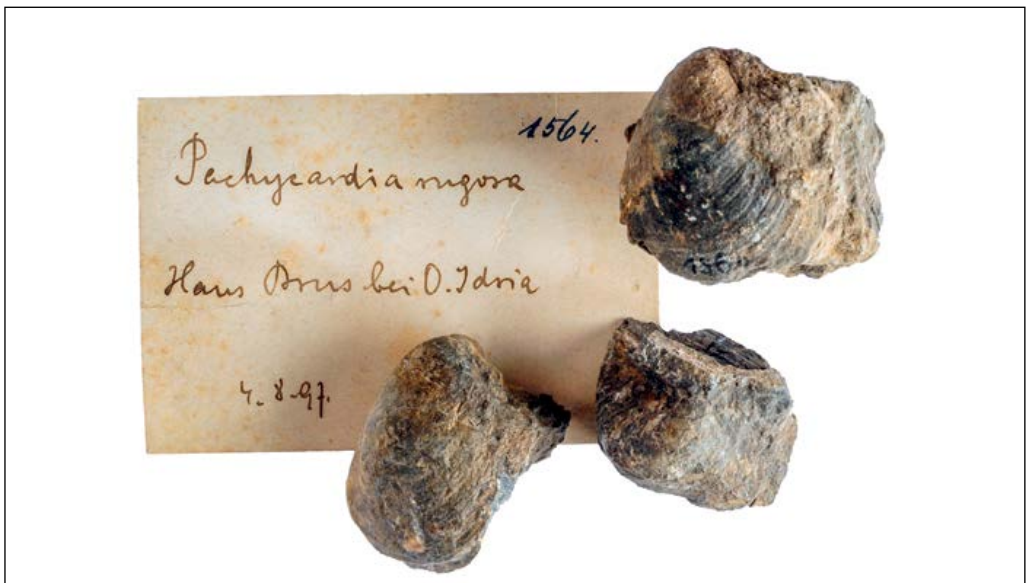 1564.
Pachycardia rugosa
Haus Brus bei O. Idria
4. 8. 97.
156